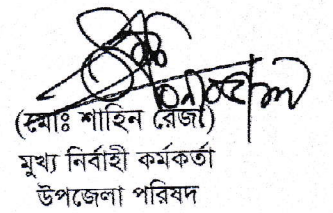 (মোঃ শাহিন রেজা)
মুখ্য নির্বাহী কর্মকর্তা
উপজেলা পরিষদ